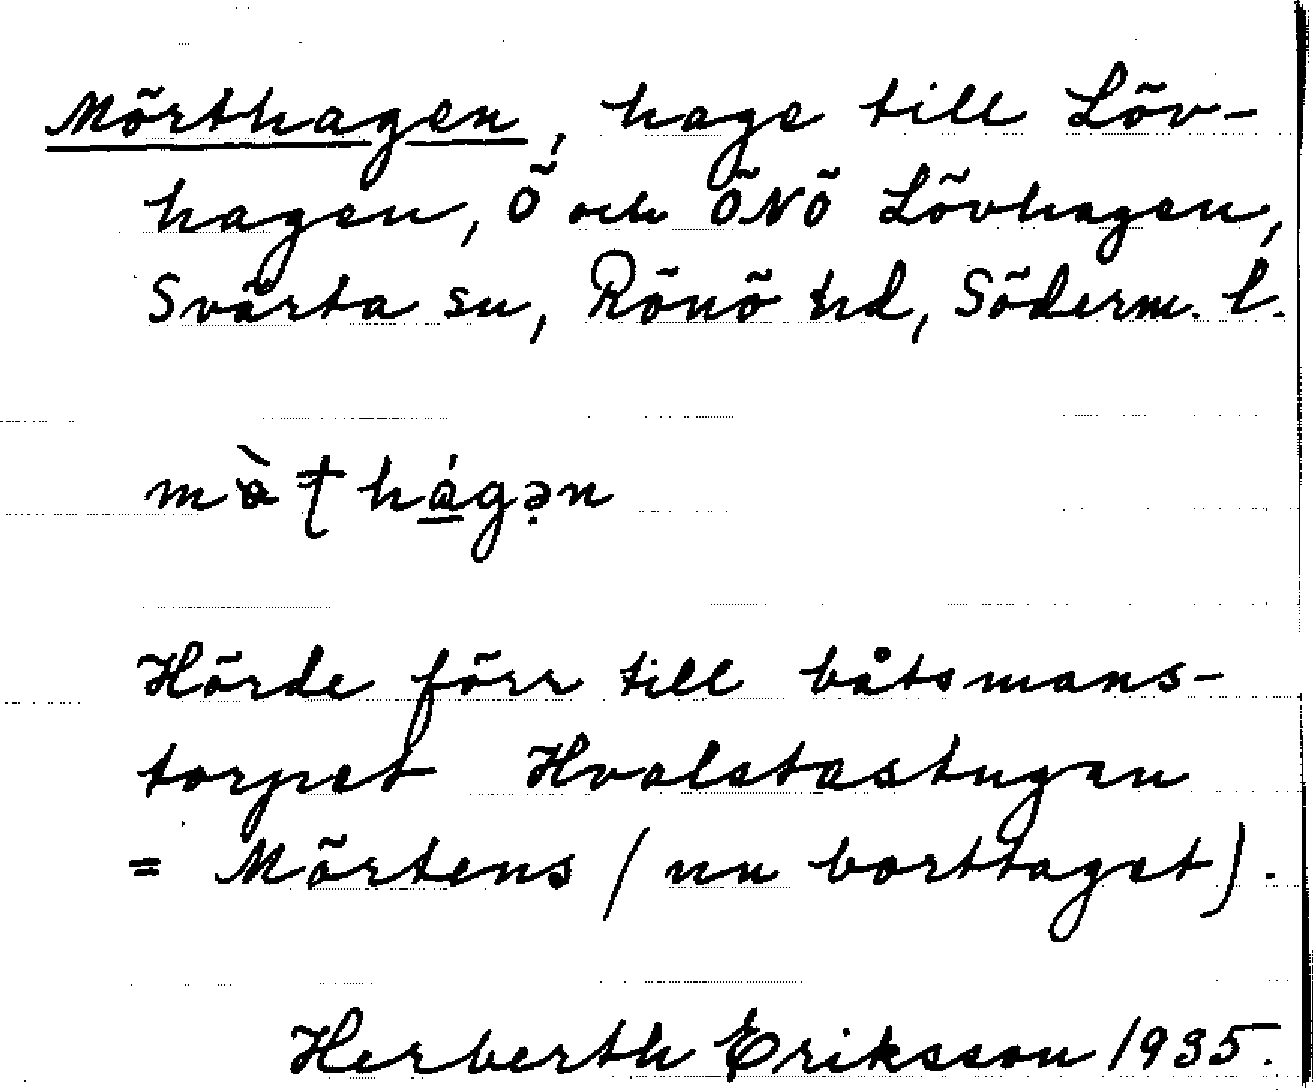 Mörthagen, hage till Löv-
hagen, Ö och ÖNÖ Lövhagen,
Svärta sn, Rönö hd, Söderm. l.
hágən
Hörde förr till båtsmans-
torpet Hvalstastugan
= Mörtens (nu borttaget).
Herberth Eriksson 1935.